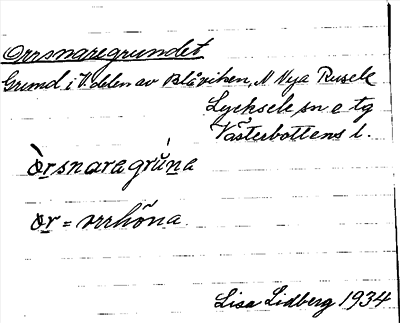 Orrsnaregrundet
Grund i V. delen av Blåviken, N Nya Rusele
Lycksele sn o tg
Västerbottens l.
òrsnaragrúna
or = orrhöna
Lisa Lidberg 1934